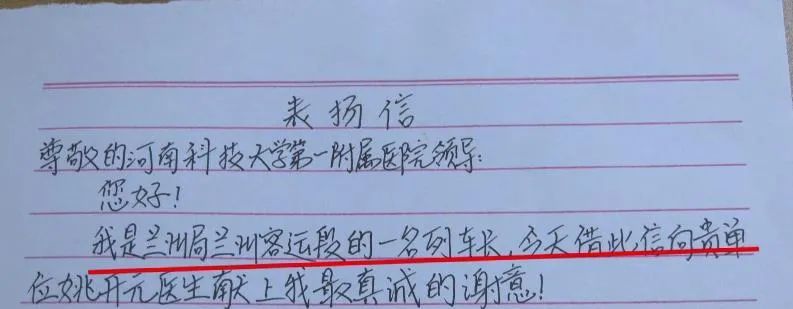 表扬信
尊敬的河南科技大学第一附属医院领导:
您好!
我是兰州局兰州客运段的一名列车长,今天借此信向贵单
位姚开元医生献上我最真诚的谢意!